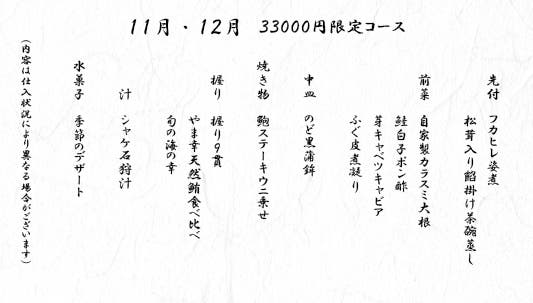 11月・12月 33000円限定コース
先付 フカヒレ姿煮
松茸入り餡掛け茶碗蒸し
前菜 自家製カラスミ大根
鮭白子ポン酢
芽キャベツキャビア
ふぐ皮煮凝り
中皿 のど黒蒲鉾
焼き物 鮑ステーキウニ乗せ
握り 握り9貫
やま幸天然鮪食べ比べ
旬の海の幸
汁 シャケ石狩汁
水菓子 季節のデザート
(内容は仕入状況により異なる場合がございます)